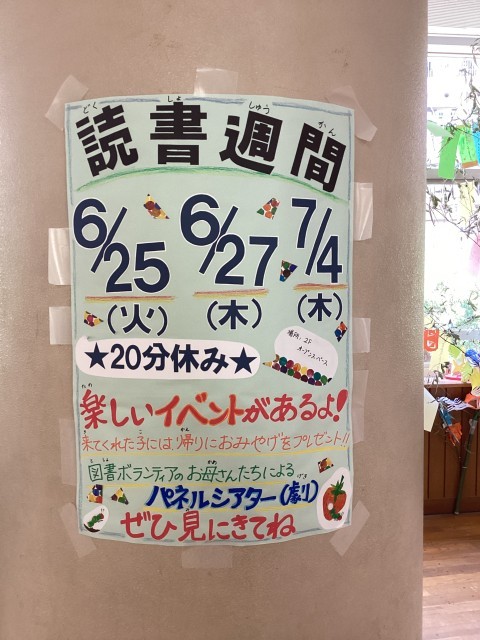 どく しょ しゅう かん
読書週間
6/25 6/27 7/4
(火) (木) (木)
★20分休み★
場所:2F
オープンスペース
たの
楽しいイベントがあるよ!
来てくれた子には、帰りにおみやげをプレゼント!!
図書ボランティアのお母さんたちによる
パネルシアター(劇)
ぜひ見にきてね